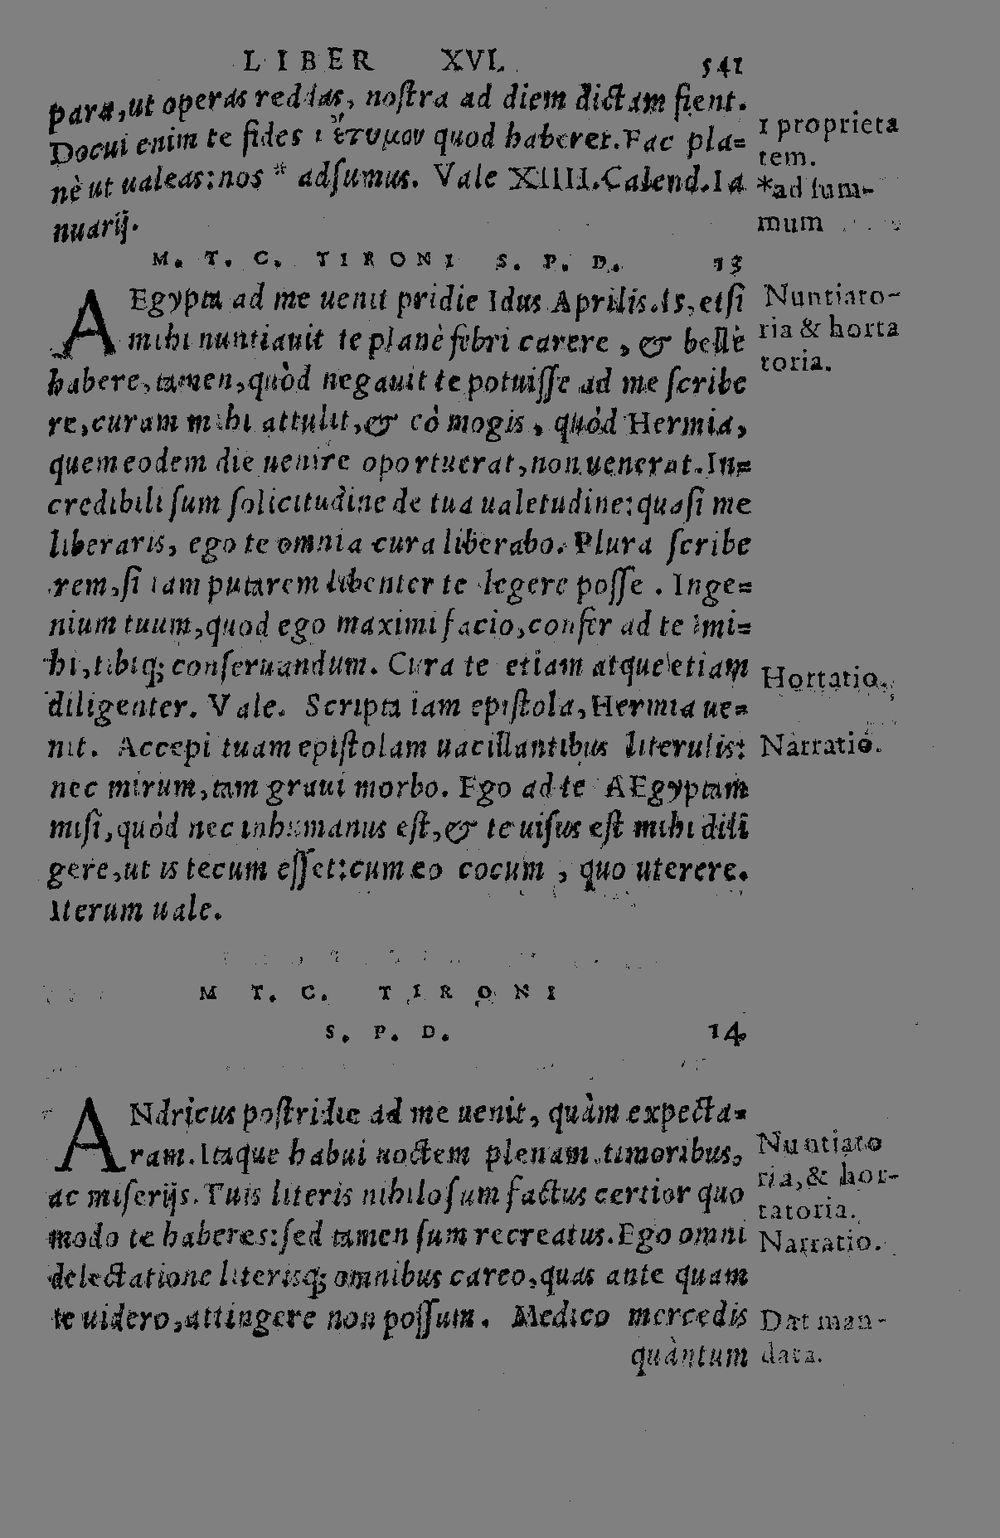 LIBER XVI. 541
para, ut operas reddas, nostra ad diem dictam fient.
Docui enim te fides ἔτυμον quod haberet. Fac pla=
nè ut ualeas: nos * adsumus. Vale XIIII. Calend. Ia
nuarij.
1 proprieta
tem.
*ad sum-
mum
M. T. C. TIRONI S. P. D. 13
AEgypta ad me uenit pridie Idus Aprilis. Is, etsi
mihi nuntiauit te planè febri carere, & bellè
habere, tamen, quòd negauit te potuisse ad me scribe
re, curam mihi attulit, & eò mogis, quòd Hermia,
quem eodem die uenire oportuerat, non uenerat. In=
credibili sum solicitudine de tua ualetudine: qua si me
liberaris, ego te omnia cura liberabo. Plura scribe
rem, si iam putarem libenter te legere posse. Inge=
nium tuum, quod ego maximi facio, confer ad te mi=
hi, tibiq; conseruandum. Cura te etiam atque etiam
diligenter. Vale. Scripta iam epistola, Hermia ue=
nit. Accepi tuam epistolam uacillantibus literulis:
nec mirum, tam graui morbo. Ego ad te AEgyptam
misi, quòd nec inhumanus est, & te uisus est mihi dili
gere, ut is tecum esset: cum eo cocum, quo uterere.
Iterum uale.
Nuntiato-
ria & horta
toria.
Hortatio.
Narratio.
M T. C. TIRONI
S. P. D. 14
ANdricus postridie ad me uenit, quàm expecta=
ram. Itaque habui noctem plenam timoribus,
ac miserijs. Tuis literis nihilo sum factus certior quo
modo te haberes: sed tamen sum recreatus. Ego omni
delectatione literisq; omnibus careo, quas ante quam
te uidero, attingere non possum. Medico mercedis
quàntum
Nuntiato
ria, & hor-
tatoria.
Narratio.
Dat man-
data.